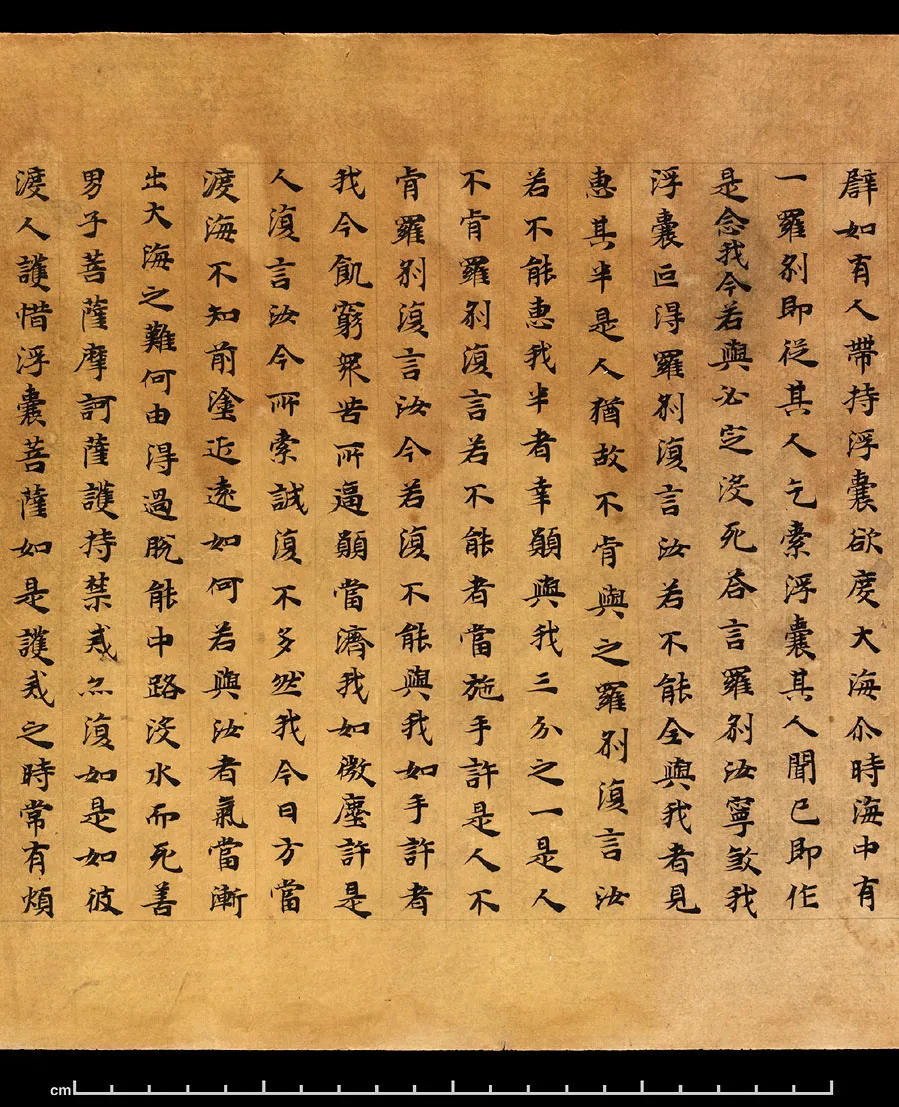 辟如有人帶持浮囊欲度大海尒時海中有
一羅刹即從其人乞索浮囊其人聞已即作
是念我今若與必定没死荅言羅刹汝寧煞我
浮囊叵得羅刹復言汝若不能全與我者見
惠其半是人猶故不肯與之羅刹復言汝
若不能惠我半者幸願與我三分之一是人
不肯羅刹復言若不能者當施手許是人不
肯羅刹復言汝今若復不能與我如手許者
我今飢窮衆苦所逼願當濟我如微塵許是
人復言汝今所索誠復不多然我今日方當
渡海不知前塗近遠如何若與汝者氣當漸
出大海之難何由得過脫能中路没水而死善
男子菩薩摩訶薩護持禁戒亦復如是如彼
渡人護惜浮囊菩薩如是護戒之時常有煩
cm